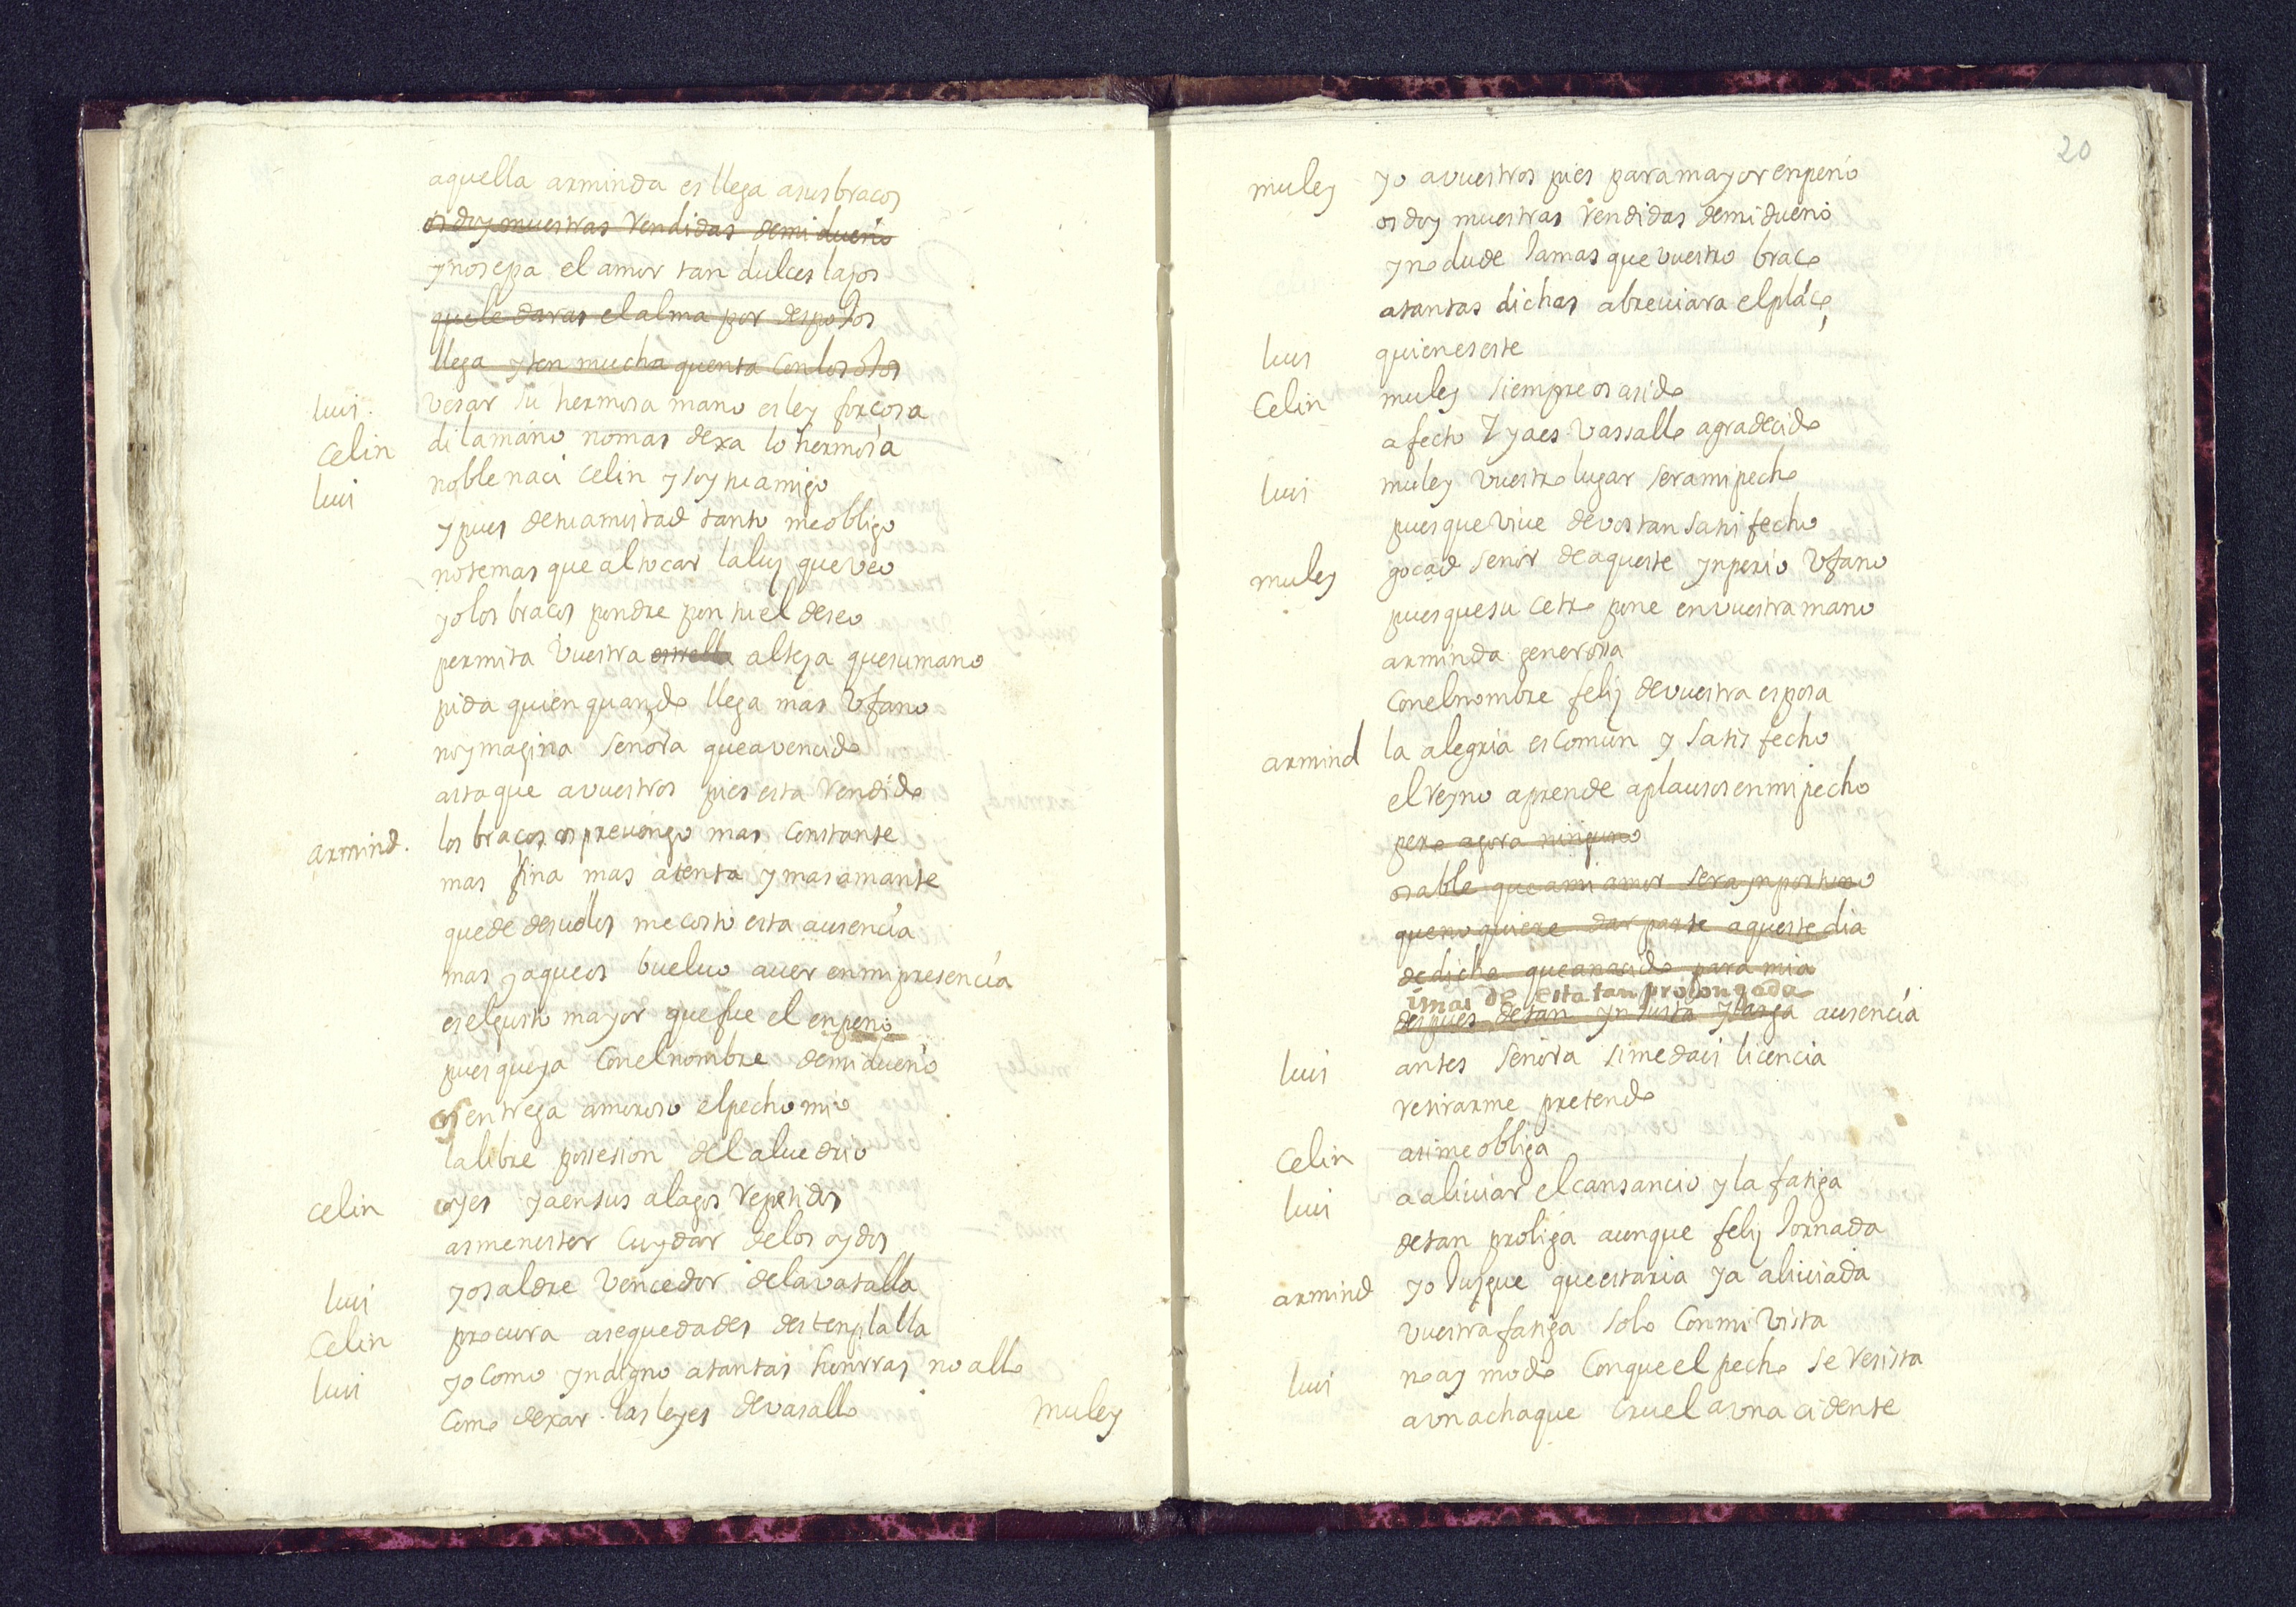 aquella arminda es llega asus bracos
os doy muestras Rendidas demi dueño
y no sepa el amor tan dulces laços
que le daras el alma por despojos
llega y ten mucha quenta con los ojos
luis. vesar su hermosa mano es ley forçosa
Celin di la mano no mas dexa lo hermosa
luis noble naci celin y soy tu amigo
y pues de tu amistad tanto me obligo
no temas que al tocar la luz que veo
yo los bracos pondre pon tu el deseo
permita Vuestra estrella alteza que su mano
pida quien quando llega mas Vfano
no ymagina señora que a vencido
asta que a vuestros pies esta Rendido
armind. los bracos os prevengo mas Constante
mas fina mas atenta y mas amante
que de desuelos me costo esta ausencia
mas ya que os bueluo a uer en mi presencia
es el gusto mayor que fue el enpeño
pues que ya Con el nombre de mi dueño
os entrega amoroso el pecho mio
la libre posesion del aluedrio
celin oyes ya en sus alagos Repetidos
as menester Cuydar de los oydos
luis yo saldre Vencedor de la vatalla
Celin procura a sequedades destenplalla
luis yo Como yndigno a tantas honrras no allo
Como dexar las leyes de vasallo
muley
20
muley yo a vuestros pies para mayor enpeño
os doy muestras Rendidas de mi dueño
y no dude Jamas que vuestro braço
a tantas dichas abreuiara el plaço,
luis quien es este
Celin muley siempre os a sido
afecto y ya es Vassallo agradecido
luis muley vuestro lugar sera mi pecho
pues que viue de vos tan satisfecho
muley gocad señor de aqueste ynperio Vfano
pues que su cetro pone en vuestra mano
arminda generosa
Con el nombre feliz de vuestra esposa
armind la alegria es Comun y satisfecho
el Reyno aprende aplausos en mi pecho
pero agora ninguno
os able que a mi amor sera ynportuno
que no quiere dar parte aqueste dia
de dicha que a nacido para mia
i mas de esta tan prolongada
despues de tan ynJusta y larga ausencia
luis antes señora si me dais licencia
Retirarme pretendo
Celin asi me obliga
luis a aliuiar el cansancio y la fatiga
de tan prolija aunque feliz Jornada
armind yo Juzgue que estaria ya aliuiada
vuestra fatiga solo Con mi Vista
luis no ay modo Con que el pecho se Resista
a vn achaque Cruel a vn acidente